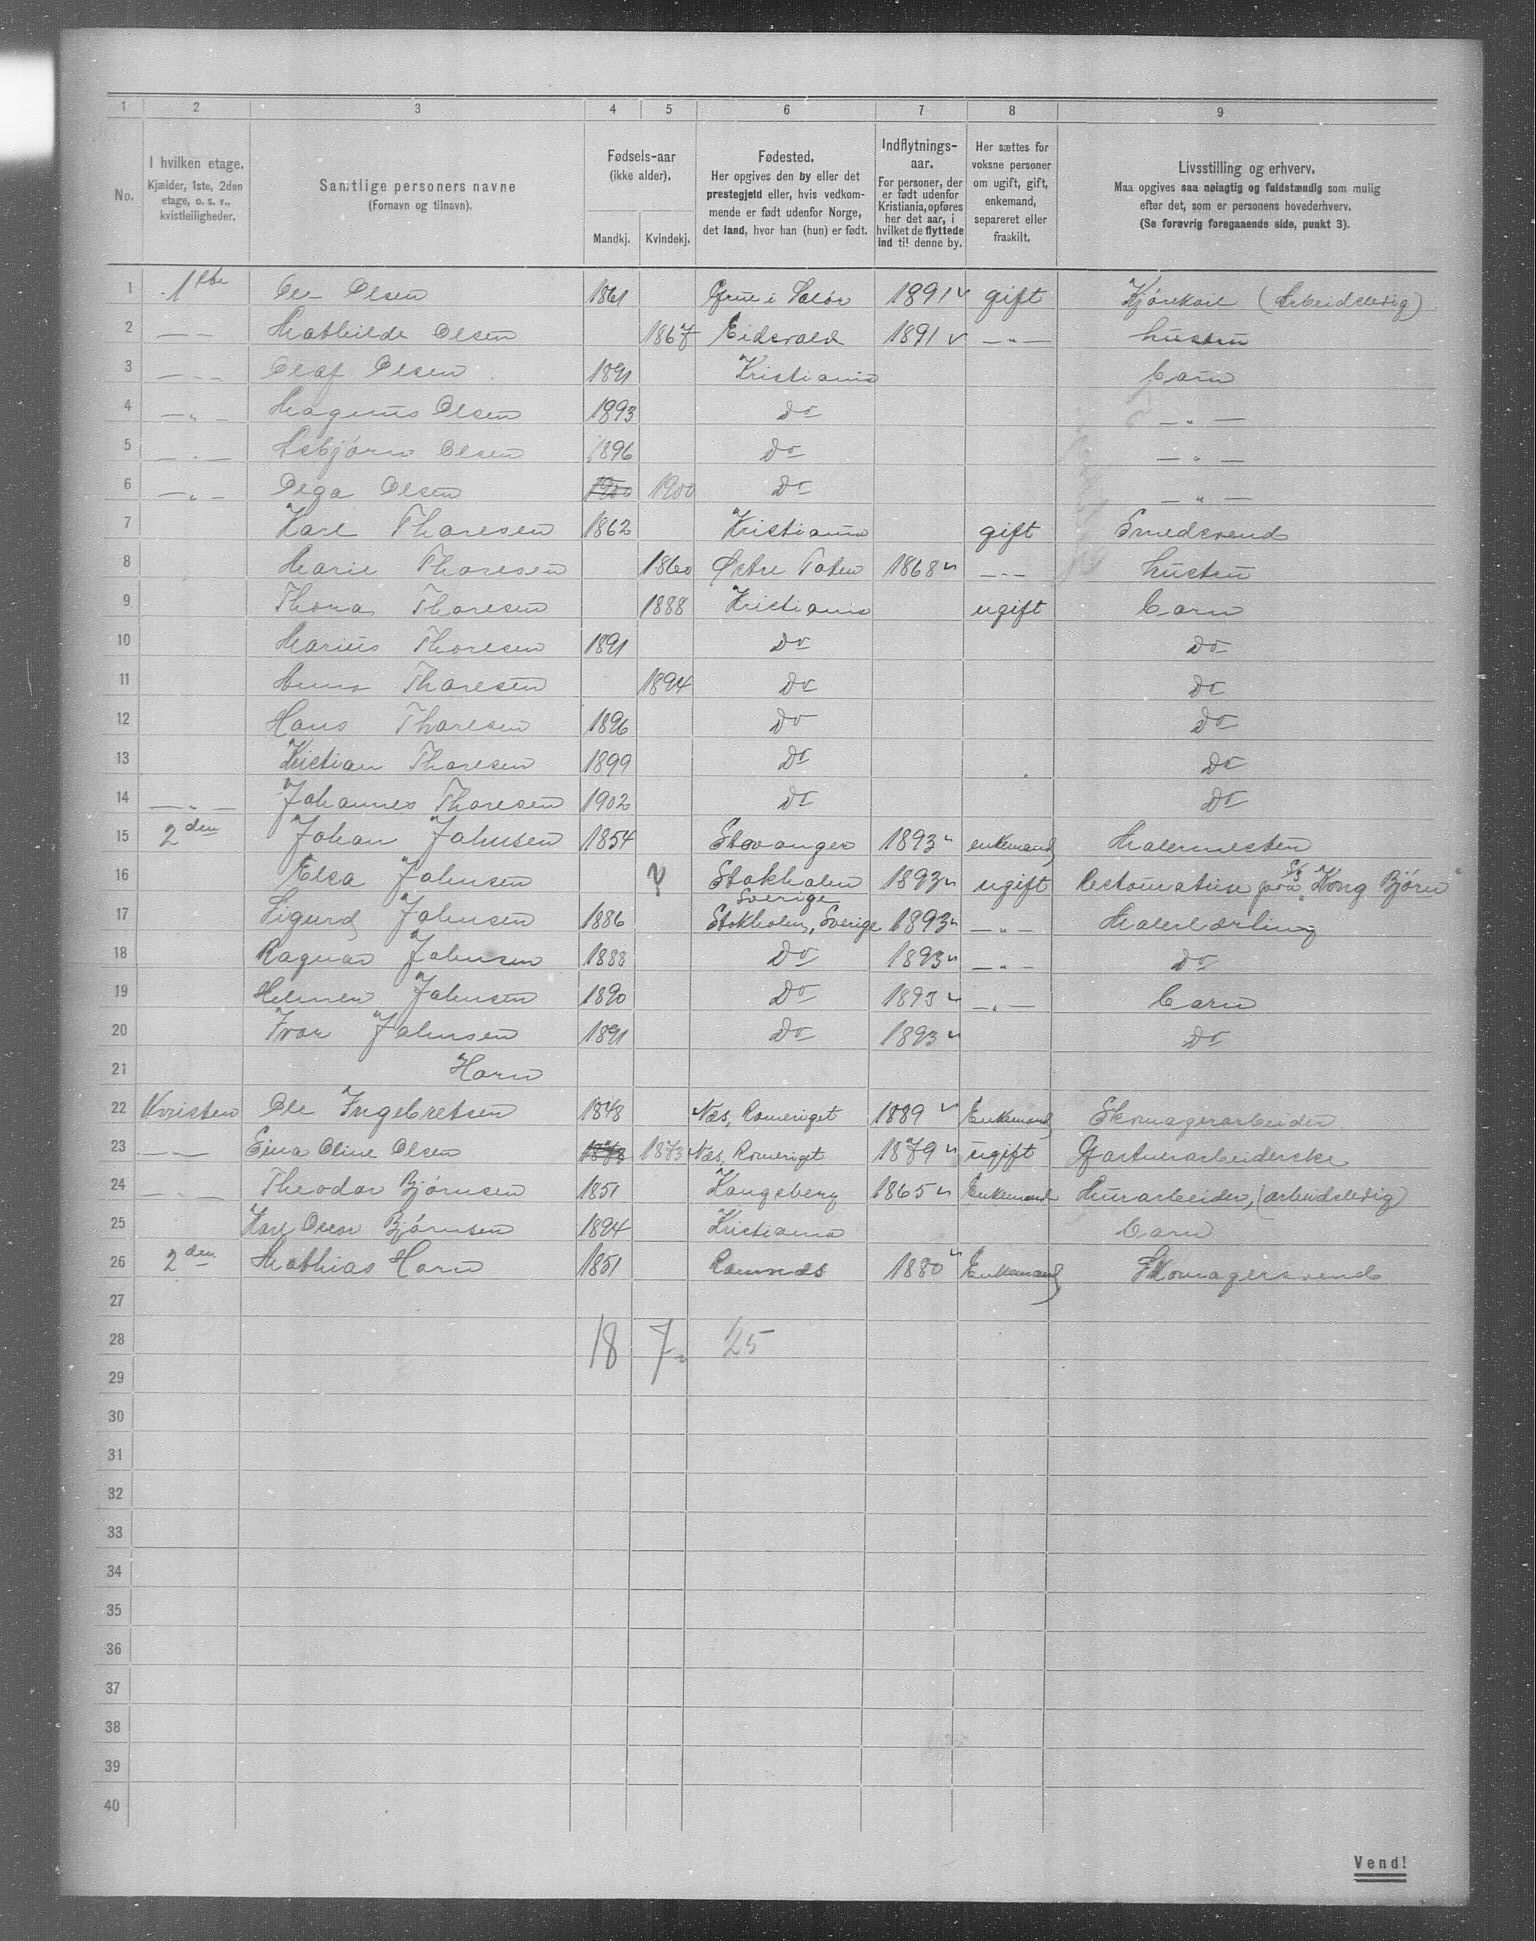 1 2 3 4 5 6 7 8 9
No.
I hvilken etage.
Kjælder, 1ste, 2den
etage, o. s. v.,
kvistleiligheder.
Samtlige personers navne
(Fornavn og tilnavn).
Fødsels-aar
(ikke alder).
Mandkj. Kvindekj.
Fødested.
Her opgives den by eller det
prestegjeld eller, hvis vedkom-
mende er født udenfor Norge,
det land, hvor han (hun) er født.
Indflytnings-
aar.
For personer, der
er født udenfor
Kristiania, opføres
her det aar, i
hvilket de flyttede
ind til denne by.
Her sættes for
voksne personer
om ugift, gift,
enkemand,
separeret eller
fraskilt.
Livsstilling og erhverv.
Maa opgives saa nøiagtig og fuldstændig som mulig
efter det, som er personens hovederhverv.
(Se forøvrig foregaaende side, punkt 3).
1 1ste Ole Olsen 1861 Grue i Solør 1891 gift Kjørekarl (Arbeidsledig)
2 — — Mathilde Olsen 1867 Eidsvold 1891 — " — hustru
3 — " — Olaf Olsen 1891 Kristiania Barn
4 — " — Magnus Olsen 1893 Do — " —
5 — " — Asbjørn Olsen 1896 Do — " —
6 — " — Olga Olsen 1900 1900 Do — " —
7 Karl Thoresen 1862 Kristiania gift Smedsvend
8 Marie Thoresen 1860 Østre Toten 1868 — " — hustru
9 Thora Thoresen 1888 Kristiania ugift Barn
10 Marius Thoresen 1891 Do Do
11 Anna Thoresen 1894 Do Do
12 Hans Thoresen 1896 Do Do
13 Kristian Thoresen 1899 Do Do
14 — " — Johannes Thoresen 1902 Do Do
15 2den Johan Johnsen 1854 Stavanger 1893 enkemand Malermester
16 Elsa Johnsen Stokholm Sverige 1893 ugift "Kong Bjørn"
17 Sigurd Johnsen 1886 Stokholm, Sverige 1893 — " — Malerlærling
18 Ragnar Johnsen 1888 Do 1893 — " — Do
19 Helmer Johnsen 1890 Do 1893 — " — Barn
20 Ivar Johnsen 1891 Do 1893 Do
21 Horn
22 Kvisten Ole Ingebretsen 1848 Næs, Romeriget 1889 Enkemand Skomagerarbeider
23 — " — Oline Olsen 1873 1873 Næs, Romeriget 1879 ugift Gartnerarbeiderske
24 — " — Theodor Bjørnsen 1851 Kongsberg 1865 Enkemand Murarbeider, (arbeidsledig)
25 Karl Oscar Bjørnsen 1894 Kristiania Barn
26 2den Mathias Horn 1851 Romnæs 1880 Enkemand Skomagersvend
27
28 18 7 25
29
30
31
32
33
34
35
36
37
38
39
40
Vend!